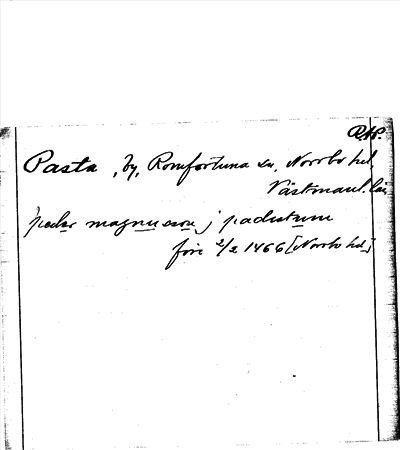 RAP.
Pasta, by, Romfartuna sn, Norrbo hd
Västmanl. län
peder magnusson j padastum
före 2/2 1466 [Norrbo hd]